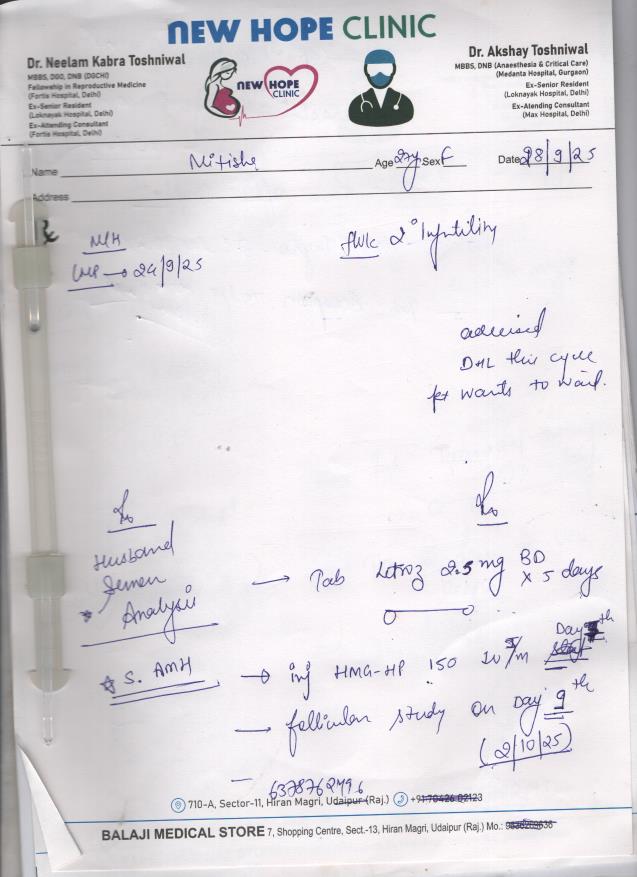 NEW HOPE CLINIC
Dr. Neelam Kabra Toshniwal
MBBS, DGO, DNB (DGCHI)
Fellowship in Reproductive Medicine
(Fortis Hospital, Delhi)
Ex-Senior Resident
(Loknayak Hospital, Delhi)
Ex-Attending Consultant
(Fortis Hospital, Delhi)
NEW HOPE
CLINIC
Dr. Akshay Toshniwal
MBBS, DNB (Anaesthesia & Critical Care)
(Medanta Hospital, Gurgaon)
Ex-Senior Resident
(Loknayak Hospital, Delhi)
Ex-Atending Consultant
(Max Hospital, Delhi)
Name Age 27y Sex F Date 28/9/25
Address
M/H
LMP → 24/9/25
2° Infertility
advised
DHL this cycle
pt wants to wait.
Husband
Semen
Analysis
→ Tab Letroz 2.5 mg BD
x 5 days
S. AMH
→ inj HMG-HP 150 IU I/m Day 7th
— follicular study on Day 9th
(2/10/25)
6378762496
710-A, Sector-11, Hiran Magri, Udaipur (Raj.)
BALAJI MEDICAL STORE 7, Shopping Centre, Sect.-13, Hiran Magri, Udaipur (Raj.) Mo.: